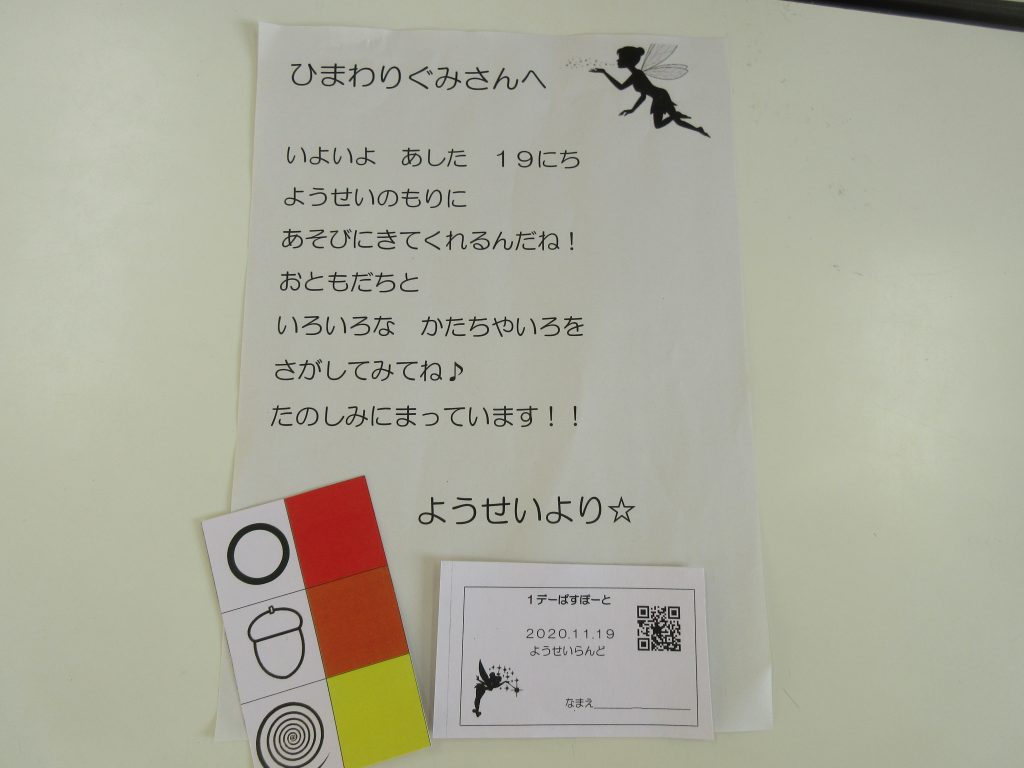 ひまわりぐみさんへ
いよいよ　あした　１９にち
ようせいのもりに
あそびにきてくれるんだね！
おともだちと
いろいろな　かたちやいろを
さがしてみてね♪
たのしみにまっています！！
ようせいより☆
１デーぱすぽーと
２０２０.１１.１９
ようせいらんど
なまえ